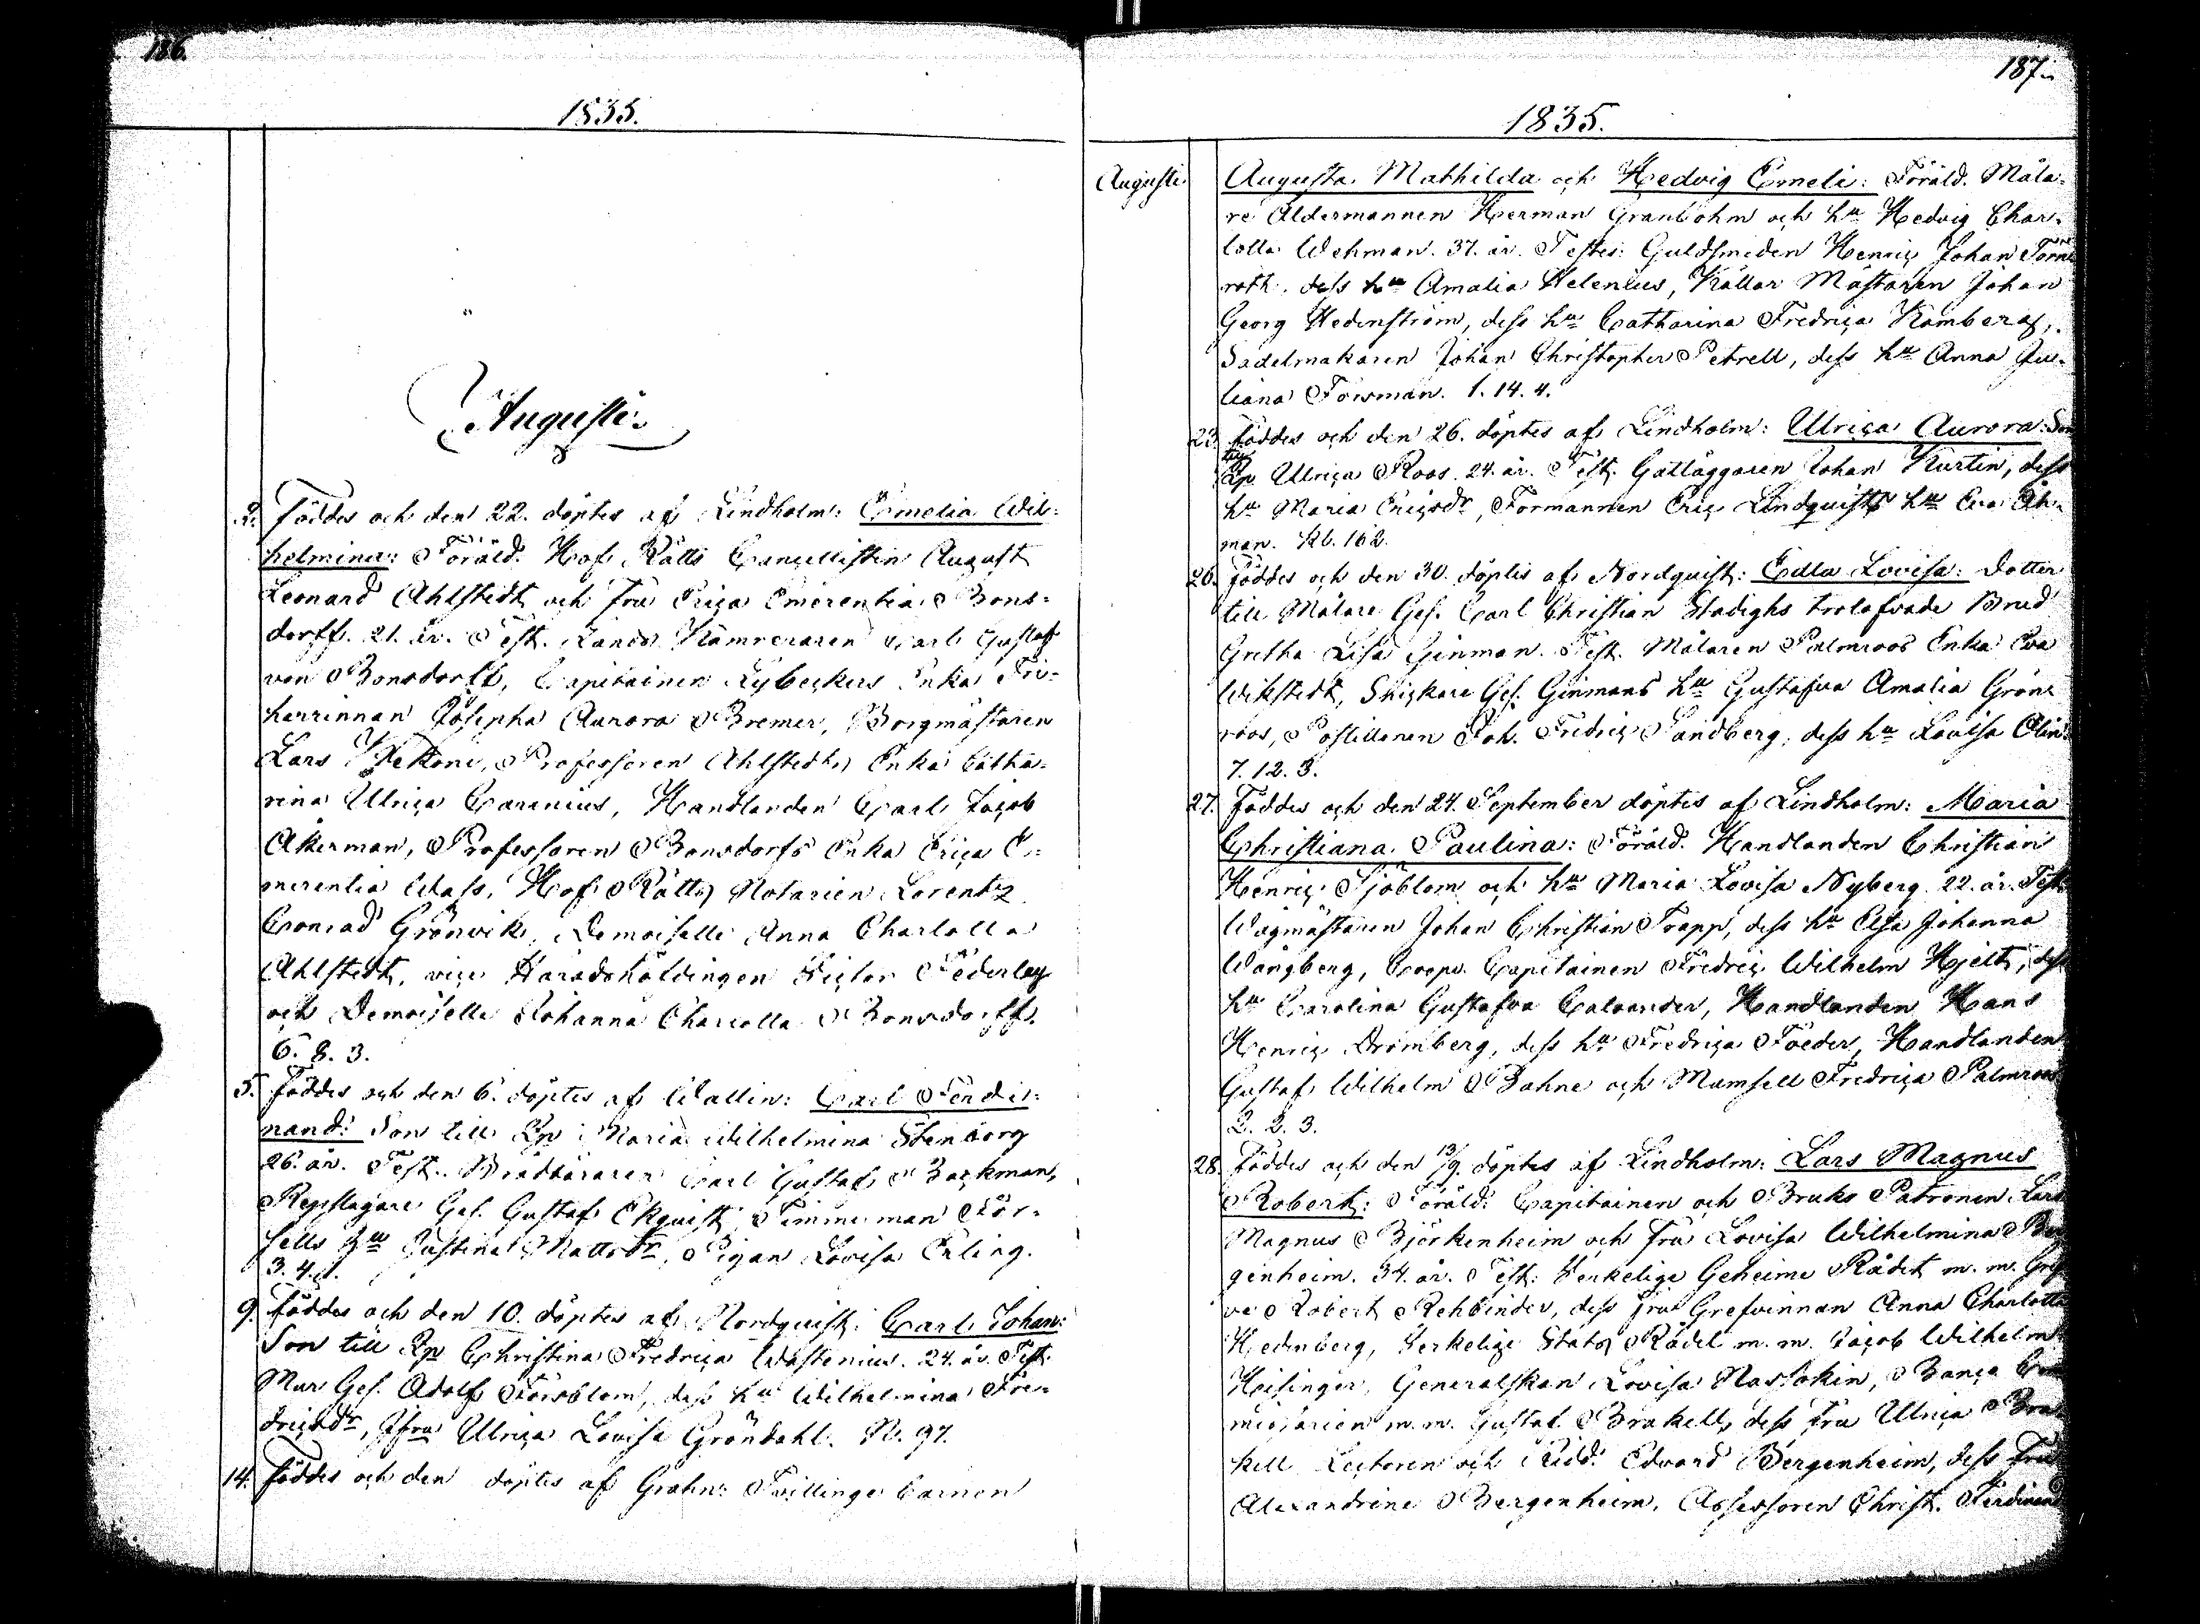 186.
1835.
Augusti.
2. Föddes och den 22. döptes af Lindholm: Emelia Wil-
helmina: Föräld. Hof Rätts Cancellisten August
Leonard Ahlstedt och Fru Erica Emerentia Bons-
dorff. 21. år. Test. Lands Kamreraren Carl Gustaf
von Bonsdorff, Capitainen Lybeckers Enka Fri-
herrinnan Josepha Aurora Bremer, Borgmästaren
Lars Professoren Ahlstedts Enka Catha-
rina Ulrica Caranius, Handlanden Carl Jacob
Åkerman, Professoren Bonsdorfs Enka Erica E-
merentia Wass, Hof Rätts Notarien Lorentz
Conrad Grönvik, Demoiselle Anna Charlotta
Ahlstedt, vice Häradshöfdingen Victor Federley
och Demoiselle Johanna Charlotta Bonsdorff.
6. 8. 3.
5. Föddes och den 6. döptes af Wallin: Carl Ferdi-
nand: Son till Qp Maria Wilhelmina Stenborg
26. år. Test. Brädbäraren Carl Gustaf Backman,
Repslagare Ges. Gustaf Ekquist, Timmerman För-
sells hu Justina Mattsdr, Pigan Lovisa Erling.
3. 4. 1.
9. Föddes och den 10. döptes af Nordquist: Carl Johan:
Son till Qp Christina Fredrica Wastenius. 24. år. Test.
Mur Ges. Adolf Forsblom, dess hu Wilhelmina Fre-
dricsdr, Jfru Ulrica Lovisa Gröndahl. N. 97.
14. Föddes och den döptes af Grahn: Tvillinge barnen
187.
1835.
Augusti
Augusta Mathilda och Hedvig Emeli: Föräld. Måla-
re Åldermannen Herman Granbohm och hu Hedvig Char-
lotta Wehman. 37. år. Testes: Guldsmeden Henric Johan Törn-
roth, dess hu Amalia Helenius, Källar Mästaren Johan
Georg Hedenström, dess hu Catharina Fredrica Kamberg,
Sadelmakaren Johan Christopher Petrell, dess hu Anna Ju-
liana Forsman. 1. 14. 4.
23. Föddes och den 26. döptes af Lindholm: Ulrica Aurora:
till Qp Ulrica Roos. 24. år. Test. Gatläggaren Johan Kurtin, dess
hu Maria Ericsdr, Formannen Eric Lindquists hu Eva Öh-
man. Kb. 162.
26. Föddes och den 30. döptes af Nordquist: Edla Lovisa: Dotter
till Målare Ges. Carl Christian Stadighs trolofvade Brud
Gretha Lisa Ginman. Test. Målaren Palmroos Enka Eva
Wikstedt, Snickare Ges. Ginmans hu Gustafva Amalia Grön-
roos, Postillonen Joh. Fredric Sandberg, dess hu Lovisa Olin.
7. 12. 3.
27. Föddes och den 24. September döptes af Lindholm: Maria
Christiana Paulina: Föräld. Handlanden Christian
Henric Sjöblom och hu Maria Lovisa Nyberg. 22. år. Test.
Wågmästaren Johan Christian Trapp, dess hu Elsa Johanna
Wångberg, Coopv. Capitainen Fredric Wilhelm Hjelt, dess
hu Carolina Gustafva Calvander, Handlanden Hans
Henric Drömberg, dess hu Fredrica Foeder, Handlanden
Gustaf Wilhelm Bahne och Mamsell Fredrica Palmroos
2. 2. 3.
28. Föddes och den 13/9. döptes af Lindholm: Lars Magnus
Robert: Föräld: Capitainen och Bruks Patronen Lars
Magnus Björkenheim och Fru Lovisa Wilhelmina Ber-
genheim. 34. år. Test: Verkelige Geheime Rådet m. m. Gref-
ve Robert Rehbinder, dess Fru Grefvinnan Anna Charlotta
Hedenberg, Verkelige Stats Rådet m. m. Jacob Wilhelm
Hisinger, Generalskan Lovisa Nassokin, Banco Com-
missarien m. m. Gustaf Brakell, dess Fru Ulrica Bra-
kell Lectoren och Ridd. Edvard Bergenheim, dess Fru
Alexandrine Bergenheim, Assessoren Christ. Ferdinand